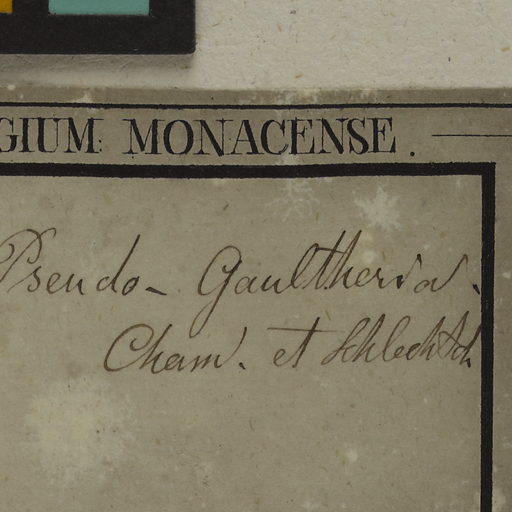 GIUM MONACENSE.
Pseudo-Gaultheria.
Cham. et Schlechtd.